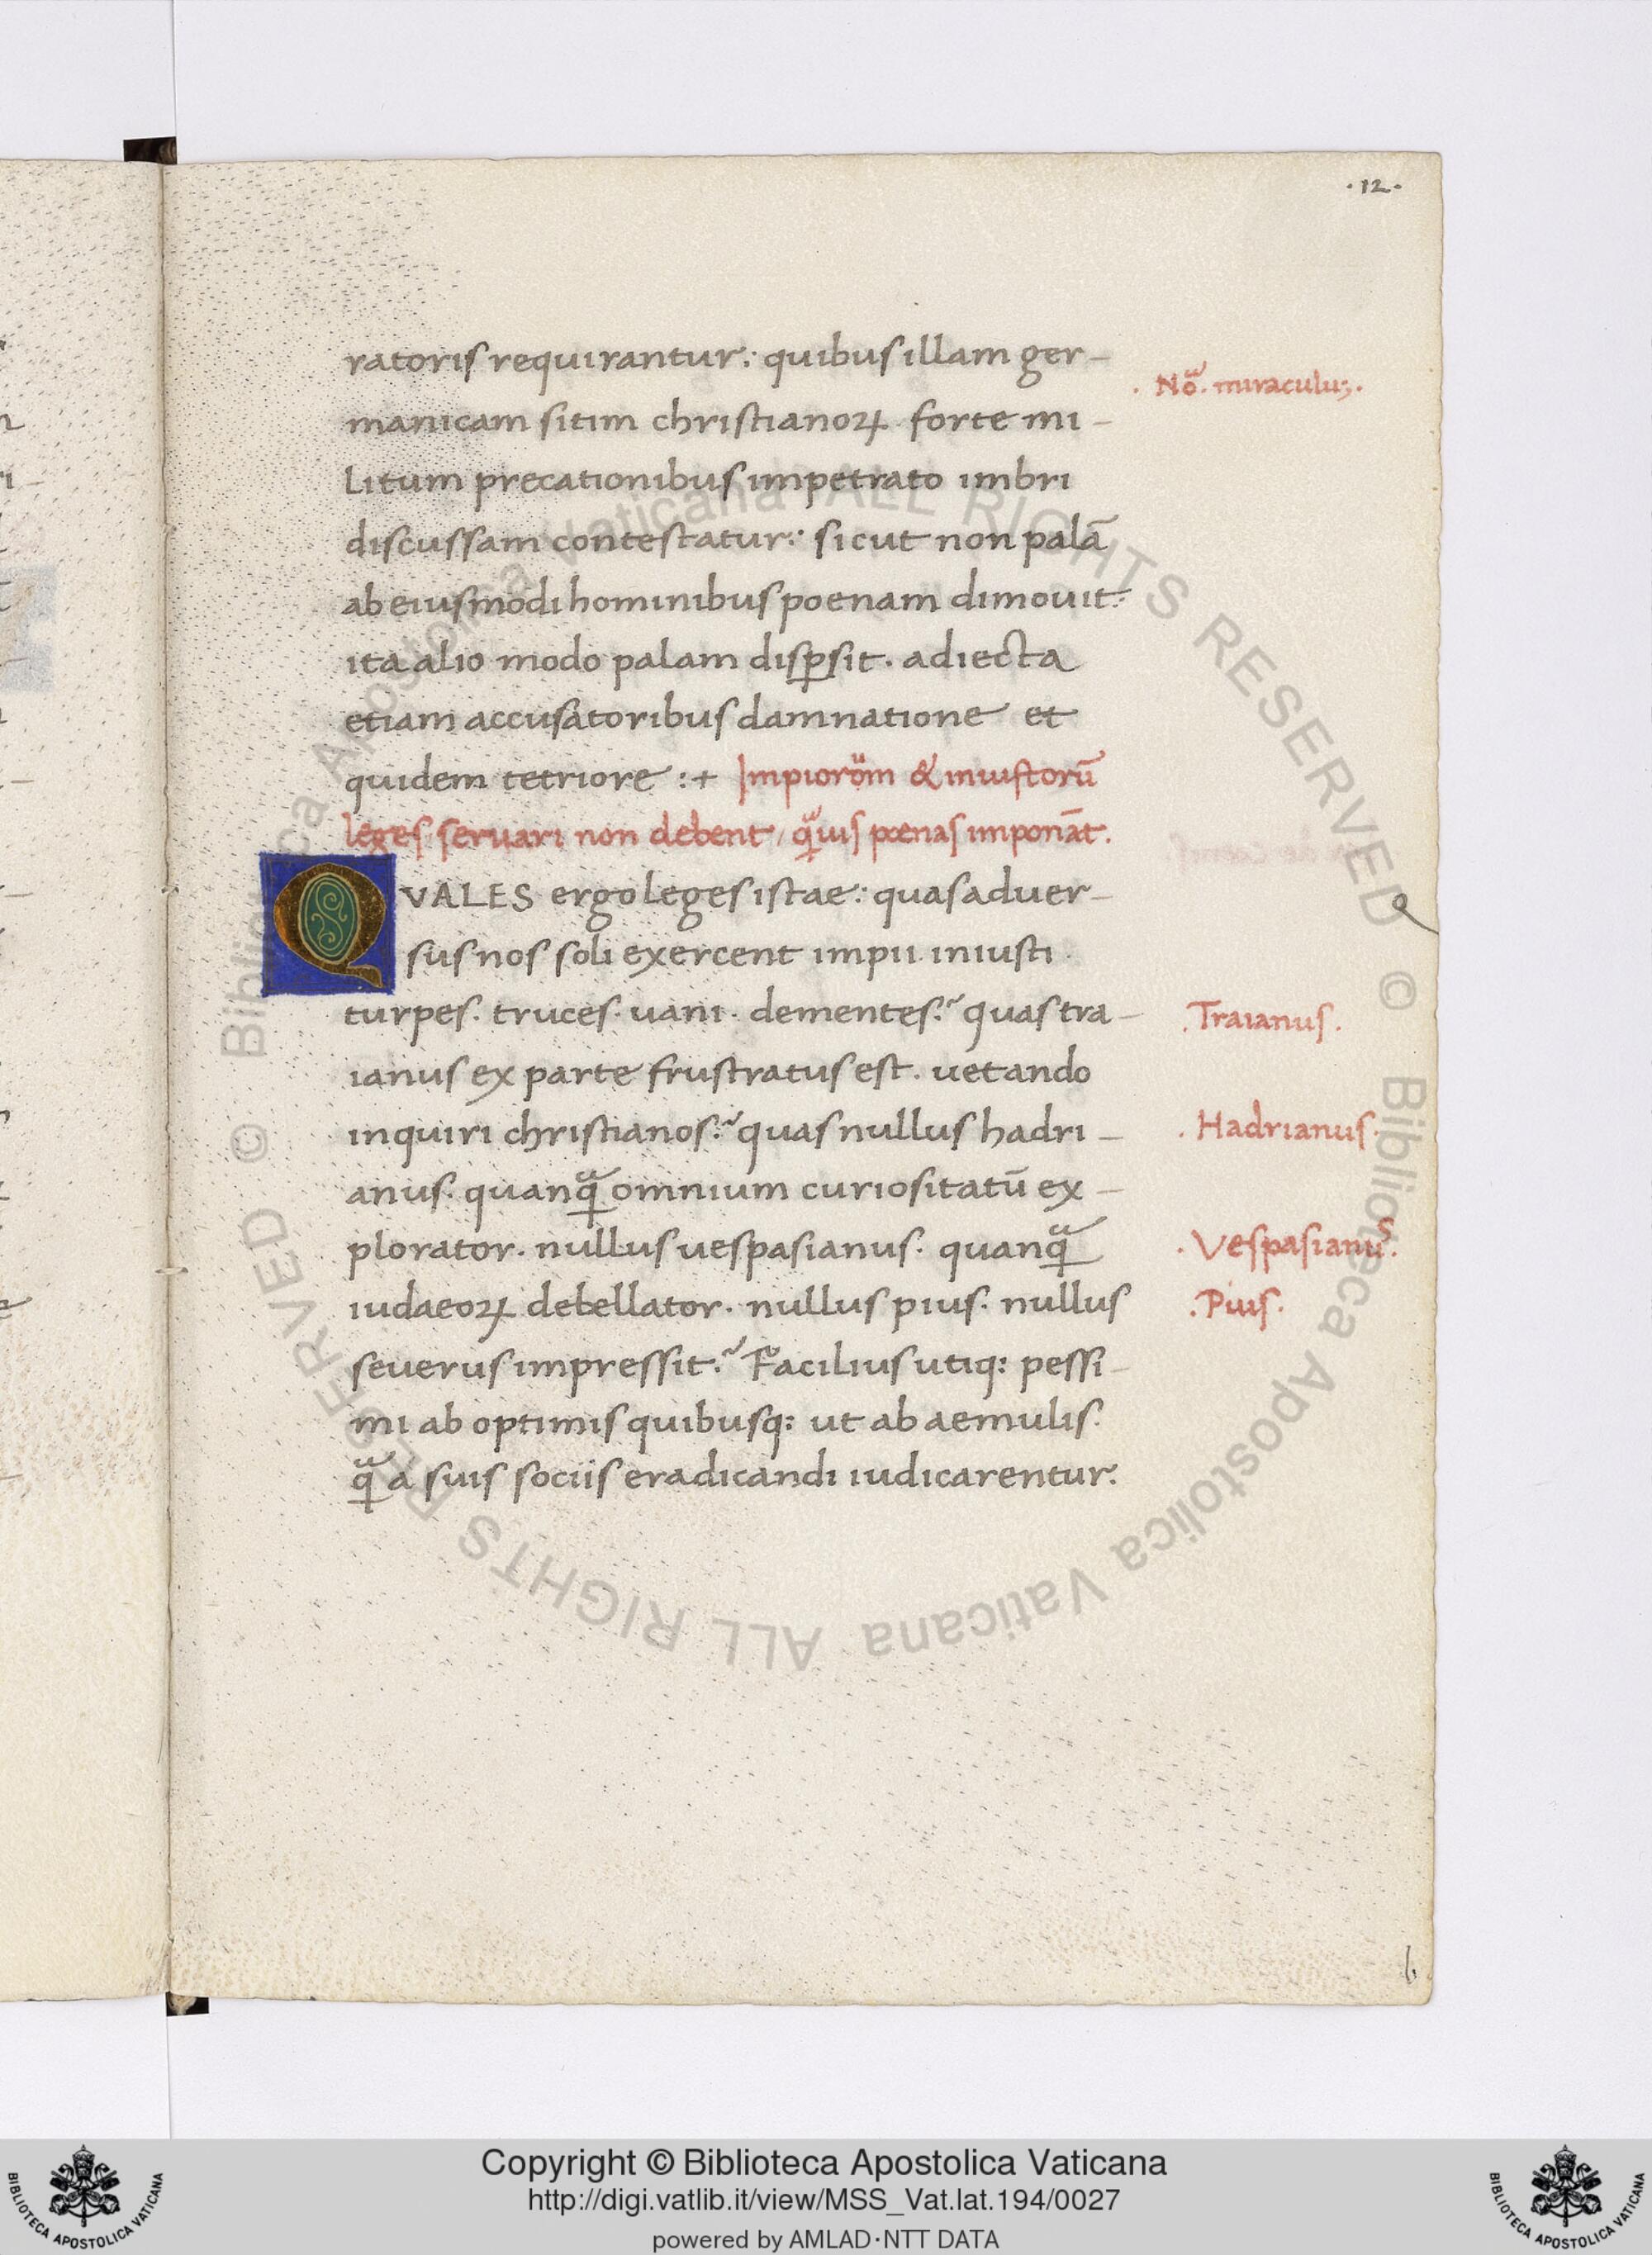 ·12·
ratoris requirantur: quibus illam ger-
· Nõ. miraculuȝ.
manicam sitim christianoꝝ forte mi-
litum precationibus impetrato imbri
discussam contestatur: sicut non palã
ab eiusmodi hominibus poenam dimouit:
ita alio modo palam disꝑsit. adiecta
etiam accusatoribus damnatione et
quidem tetriore :+ Impiorum & iniustorũ
leges seruari non debent, qᷓuis poenas imponãt.
QVALES ergo leges istae: quas aduer-
sus nos soli exercent impii. iniusti.
turpes. truces. uani. dementes? quas tra-
.Traianus.
ianus ex parte frustratus est. uetando
inquiri christianos? quas nullus hadri-
. Hadrianus.
anus. quanqᷓ omnium curiositatũ ex-
plorator. nullus uespasianus. quanqᷓ
. Vespasianus.
iudaeoꝝ debellator. nullus pius. nullus
.Pius.
seuerus impressit? Facilius utiq; pessi-
mi ab optimis quibusq; ut ab aemulis.
qᷓ a suis sociis eradicandi iudicarentur.
b
© Biblioteca Apostolica Vaticana ALL RIGHTS RESERVED © Biblioteca Apostolica Vaticana ALL RIGHTS RESERVED
Copyright © Biblioteca Apostolica Vaticana
http://digi.vatlib.it/view/MSS_Vat.lat.194/0027
powered by AMLAD·NTT DATA
BIBLIOTECA APOSTOLICA VATICANA
BIBLIOTECA APOSTOLICA VATICANA